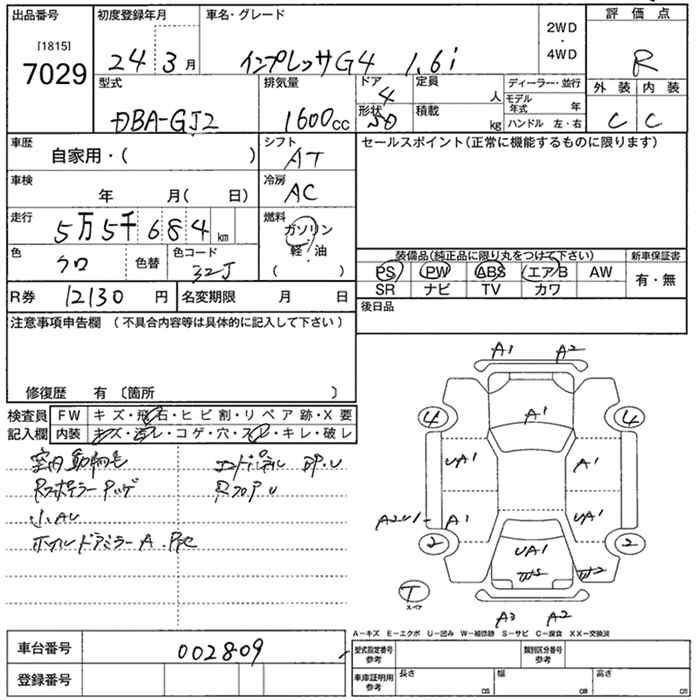 出品番号 初度登録年月 車名・グレード 2WD・4WD 評価点
[1815] 7029 24 3月 インプレッサG4 1.6i R
型式 排気量 ドア 定員 ディーラー・並行 外装 内装
DBA-GJ2 1600cc 4 人 モデル年式 年 C C
形状 SD 積載 kg ハンドル 左・右
車歴 自家用・( ) シフト AT セールスポイント(正常に機能するものに限ります)
車検 年 月( 日) 冷房 AC
走行 5万5千684km 燃料 ガソリン 軽・油 ( )
色 クロ 色替 色コード 32J
装備品(純正品に限り丸をつけて下さい) 新車保証書
PS PW ABS エアB AW 有・無
SR ナビ TV カワ
R券 12130円 名変期限 月 日 後日品
注意事項申告欄 (不具合内容等は具体的に記入して下さい)
修復歴 有 〔箇所 〕
検査員記入欄 FW キズ・飛石・ヒビ割・リペア跡・X要
内装 キズ・汚レ・コゲ・穴・スレ・キレ・破レ
室内動物毛 エンドパネル
小AU
ホイルドアミラーA
A1 A2
A1
4 4
UA1 A'
A2U1 A1 UA1
2 2
UA1
W5 W2
T スペア
A3 A2
A-キズ E-エクボ U-凹み W-補修跡 S-サビ C-腐食 XX-交換済
車台番号 002809 型式指定番号参考 類別区分番号参考
登録番号 車庫証明用参考 長さ cm 幅 cm 高さ cm